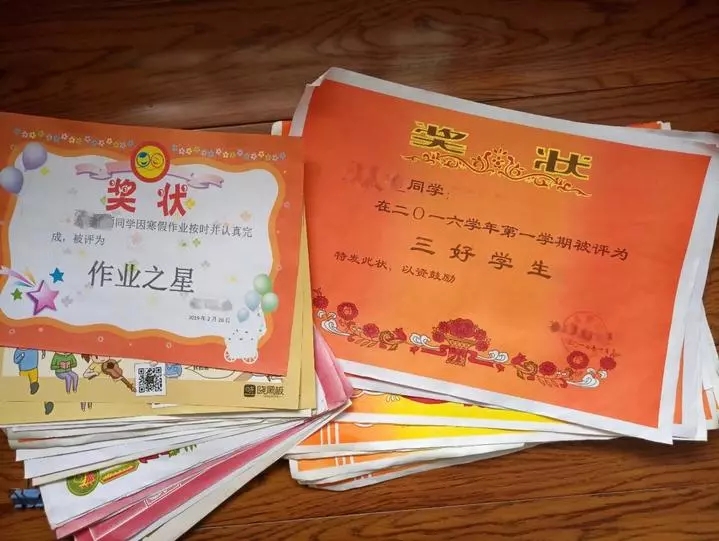 奖状
同学因寒假作业按时并认真完
成，被评为
作业之星
2019年2月26日
晓黑板
奖状
同学：
在二〇一六学年第一学期被评为
三好学生
特发此状，以资鼓励